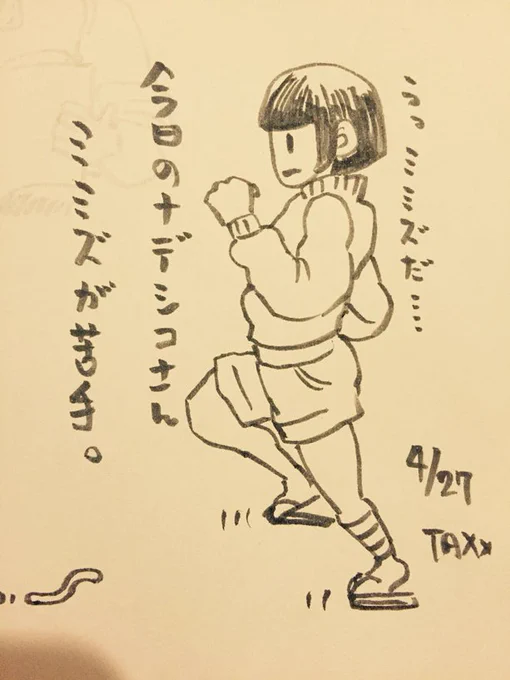 うっ ミミズだ…
今日のナデシコさん
ミミズが苦手。
4/27
TAXx